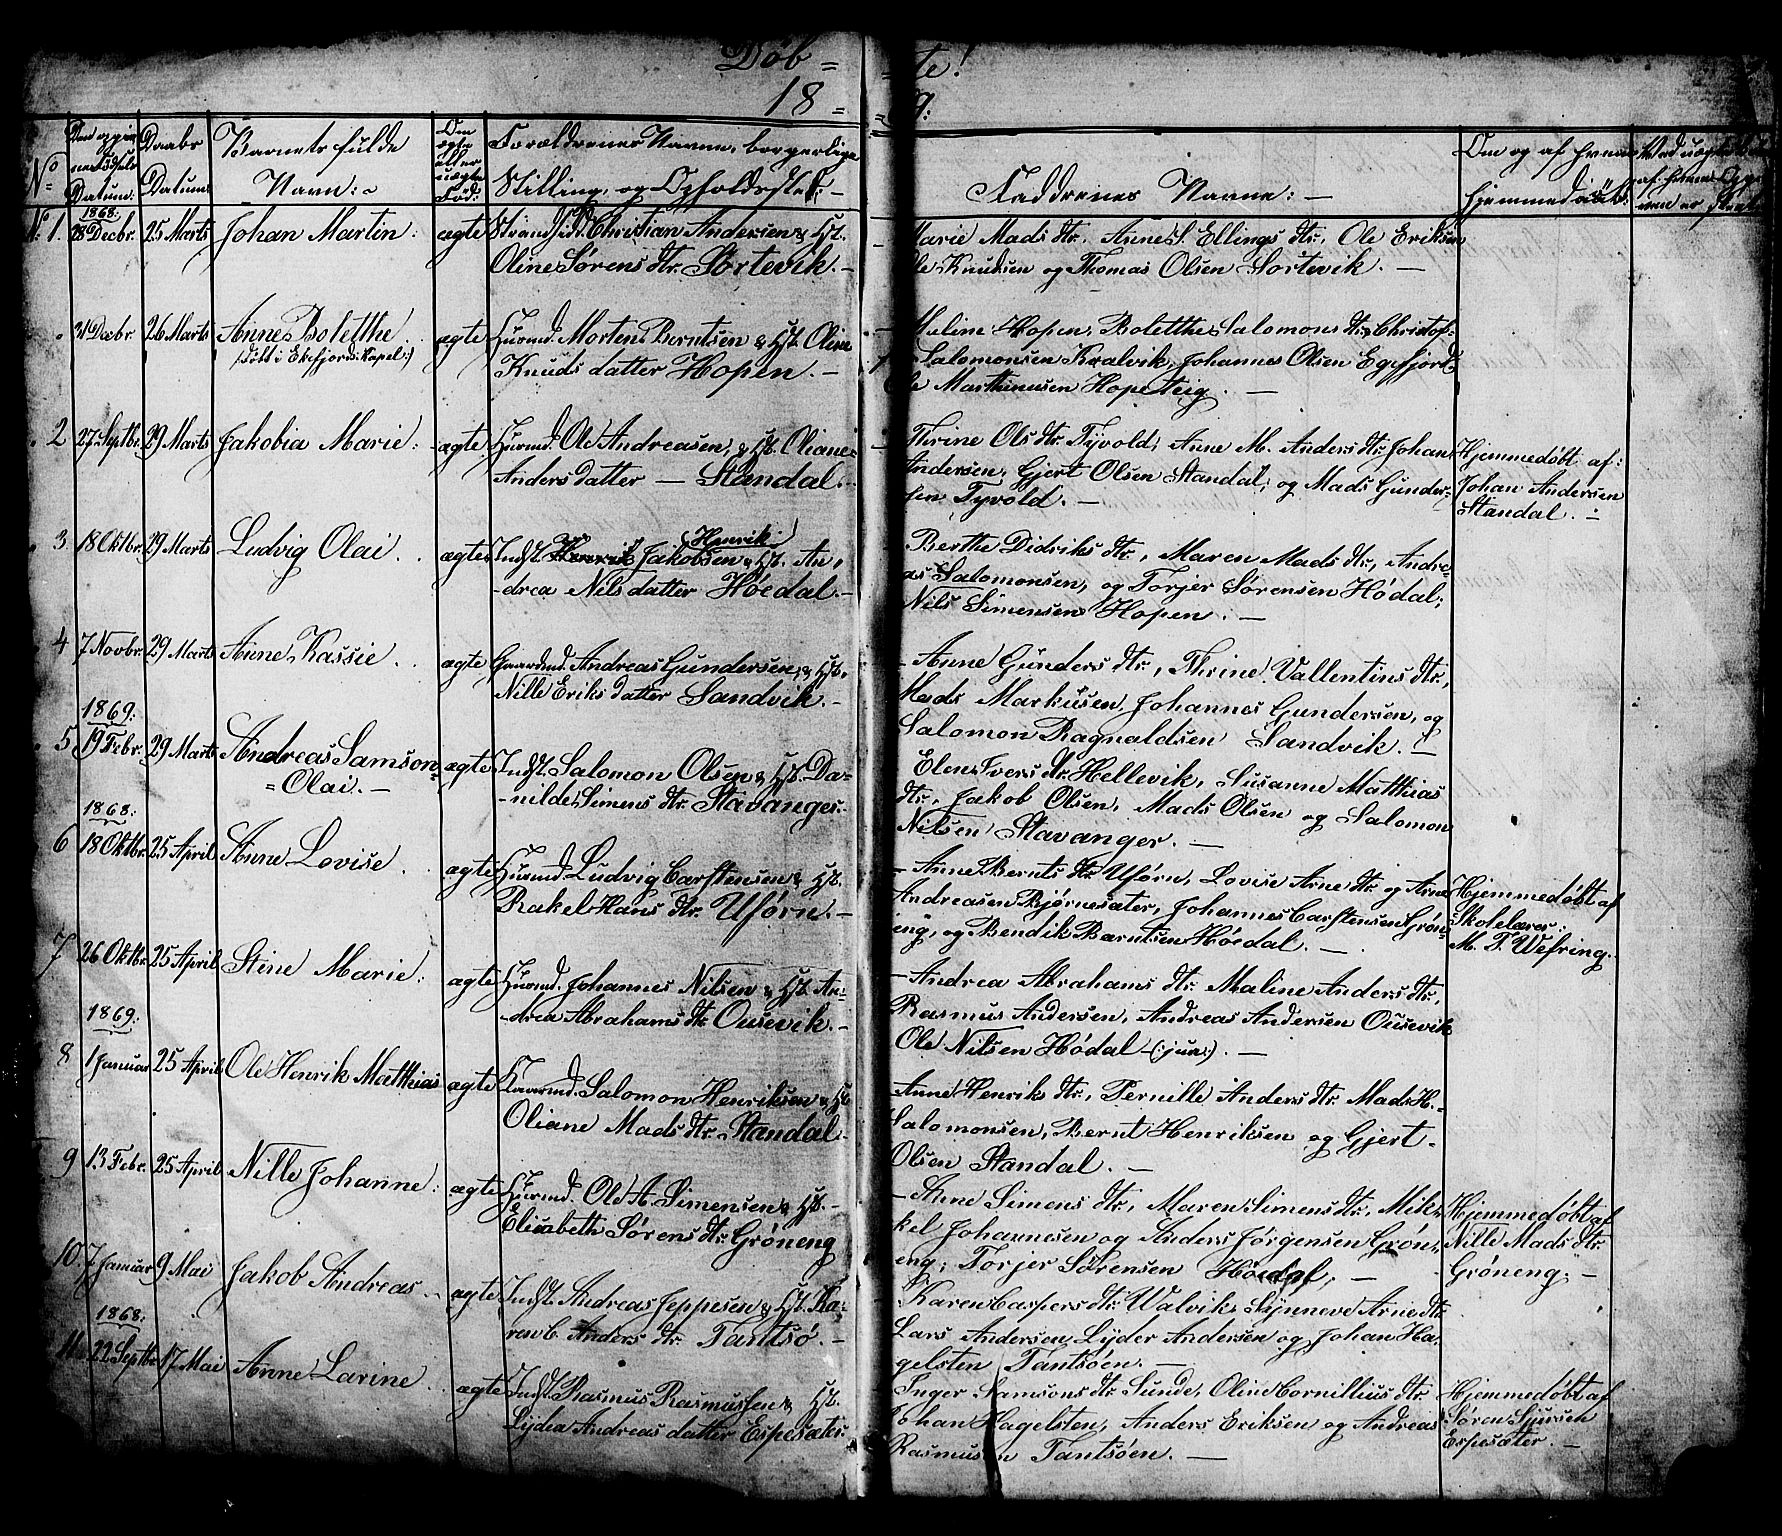 Döb= =te!
18= =9:
No
Datum:
Daabs
Datum:
Barnets fulde
Navn:
Om
ægte
eller
uægte
Fød:
Forældrenes Navne, borgerlige
Stilling, og Opholdssted:
Faddrenes Navne:
Om og af hvem
hjemmedöbt:
No 1. 1868: 28 Decbr. 25 Marts Johan Martin: ægte Strands. Christian Andersen & Hst.
Oline Sørens dtr. Sørtevik.
Marie Mads dtr. Anne S. Ellings dtr, Ole Eriksen
Ole Knudsen og Thomas Olsen Sortevik.
31 Decbr. 26 Marts Anne Boletthe. ægte Huusmd. Morten Berntsen & Hst. Oline
(döbt i Ekefjords Kapel:)
Knuds datter Hopen.
Maline Hopen, Boletthe Salomons dtr, Christof=
Salomonsen Kralvik, Johannes Olsen Egefjord
Ole Marthinusen Hopeteig.
2 27 Septbr. 29 Marts Jakobia Marie: ægte Huusmd. Ole Andreasen, & Hst. Oliane
Anders datter Standal.
Thrine Ols dtr. Tyvold, Anne M. Anders dtr. Johan
Andersen, Gjert Olsen Standal, og Mads Gunder=
sen Tyvold.
Hjemmedöbt af:
Johan Andersen
Standal.
3 18 Oktbr. 29 Marts Ludvig Olai. ægte Indst. Henrik Jakobsen & Hst. An=
=drea Nils datter Höedal.
Berthe Didriks dtr, Maren Mads dtr, Andre=
as Salomonsen, og Torjer Sørensen Hödal;
Nils Simensen Hopen.
4 7 Novbr. 29 Marts Anne Kassie. ægte Gaardmd. Andreas Gundersen, & Hst.
Nille Eriks datter Sandvik.
Anne Gunders dtr, Thrine Vallentins dtr,
Mads Markusen, Johannes Gundersen, og
Salomon Ragnaldsen Sandvik.
1869:
5 19 Febr. 29 Marts Andreas Samson= ægte Indst. Salomon Olsen & Hst. Da=
=Olai.
=nilde Simens dtr. Stavanger.
Elen Ivers dtr. Hellevik, Susanne Matthias
dtr, Jakob Olsen, Mads Olsen og Salomon
Nilsen Stavanger.
1868:
6 18 Oktbr. 25 April Anne Lovise. ægte Huusmd. Ludvig Carstensen & Hst.
Rakel Hans dtr. Uförn.
Anne Bernts dtr. Uförn, Lovise Arne dtr. og Arne
Andreasen Bjørnesæter, Johannes Carstensen Grön=
eng, og Bendik Bærntsen Höedal.
Hjemmedöbt af
Skolelærer:
M. T. Wefring.
7 26 Oktbr. 25 April Stine Marie: ægte Huusmd. Johannes Nilsen & Hst. An=
=drea Abrahams dtr. Ousevik.
Andrea Abrahams dtr. Maline Anders dtr,
Rasmus Andersen, Andreas Andersen Ousevik
Ole Nilsen Hödal (:jun:).
1869:
8 1 Januar 25 April Ole Henrik Matthias ægte Gaardmd. Salomon Henriksen & Hst.
Oliane Mads dtr. Standal
Anne Henriks dtr, Pernille Anders dtr. Mads H.
Salomonsen, Bernt Henriksen og Gjert
Olsen Standal.
9 13 Febr. 25 April Nille Johanne: ægte Huusmd. Ole A. Simensen & Hst.
Elisabeth Sørens dtr. Gröneng
Anne Simens dtr, Maren Simens dtr, Mik=
kel Johannesen og Anders Jørgensen Grön=
eng, Torjer Sørensen Höedal,
Hjemmedöbt af
Nille Mads dtr.
Gröneng;
10. 7 Januar 9 Mai Jakob Andreas. ægte Indst. Andreas Jeppesen & Hst. Ka=
ren C. Anders dtr. Tantsö.
Karen Caspers dtr. Walvik, Synneve Arne dtr.
Lars Andersen, Lyder Andersen og Johan Ha=
gelsten Tantsöen.
1868:
11. 22 Septbr 17 Mai Anne Larine. ægte Indst. Rasmus Rasmussen & Hst.
Lydea Andreas datter Espesæter.
Inger Samsons dtr. Sunde, Oline Cornillius dtr.
Johan Hagelsten, Anders Eriksen og Andreas
Rasmussen Tantsöen.
Hjemmedöbt af
Søren Sjursen
Espesæter.